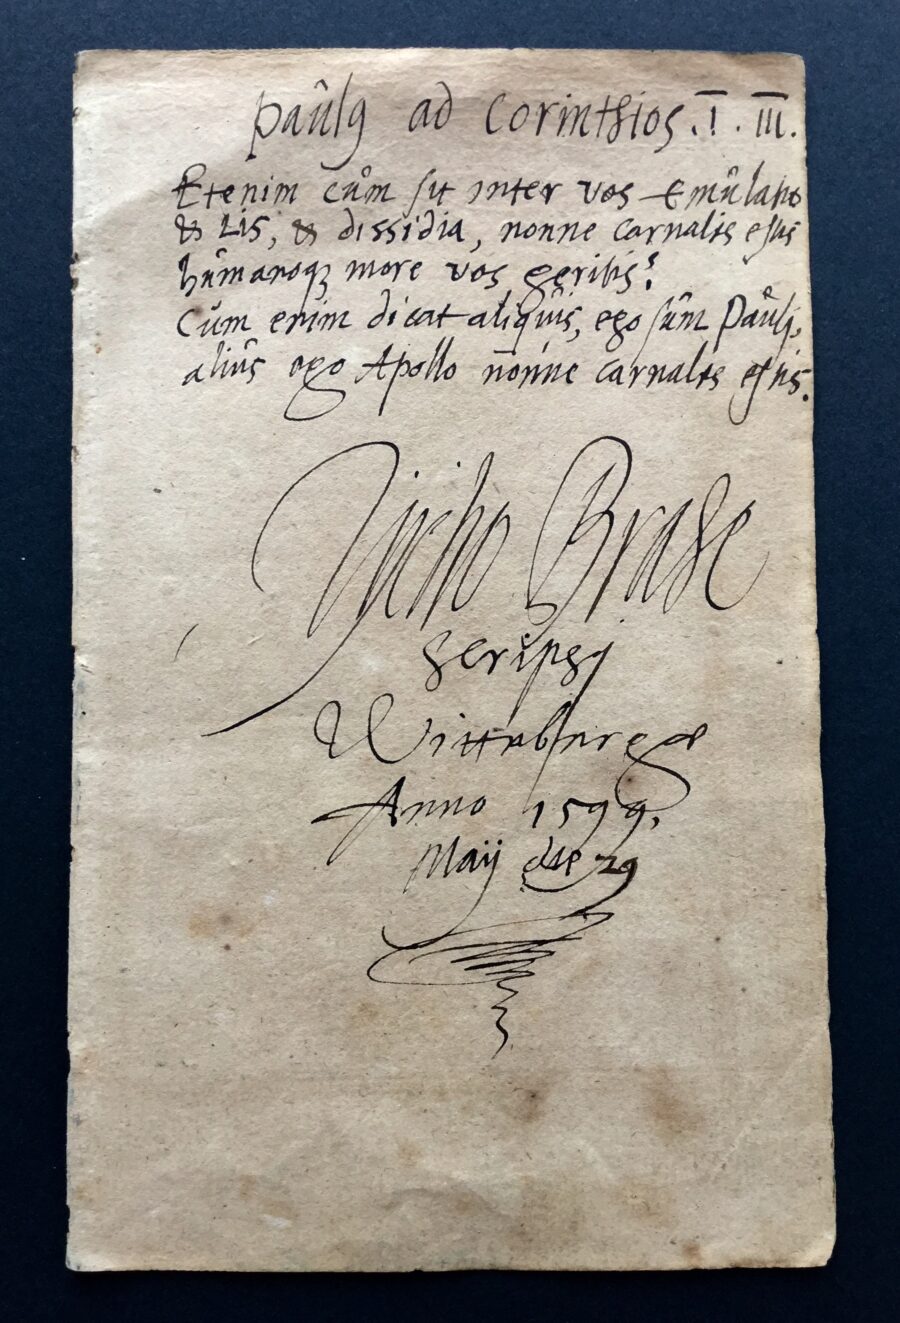 Paulꝰ ad Corinthios. I. III.
Etenim cum sit inter vos Æmulatio
& Lis, & dissidia, nonne carnales estis
humanoqꝫ more vos geritis?
Cum enim dicat aliquis, ego sum Pauli,
alius ego Apollo nonne carnales estis.
Tÿcho Brahe
scripsj
Wittebergæ
Anno 1599.
Maij die 29